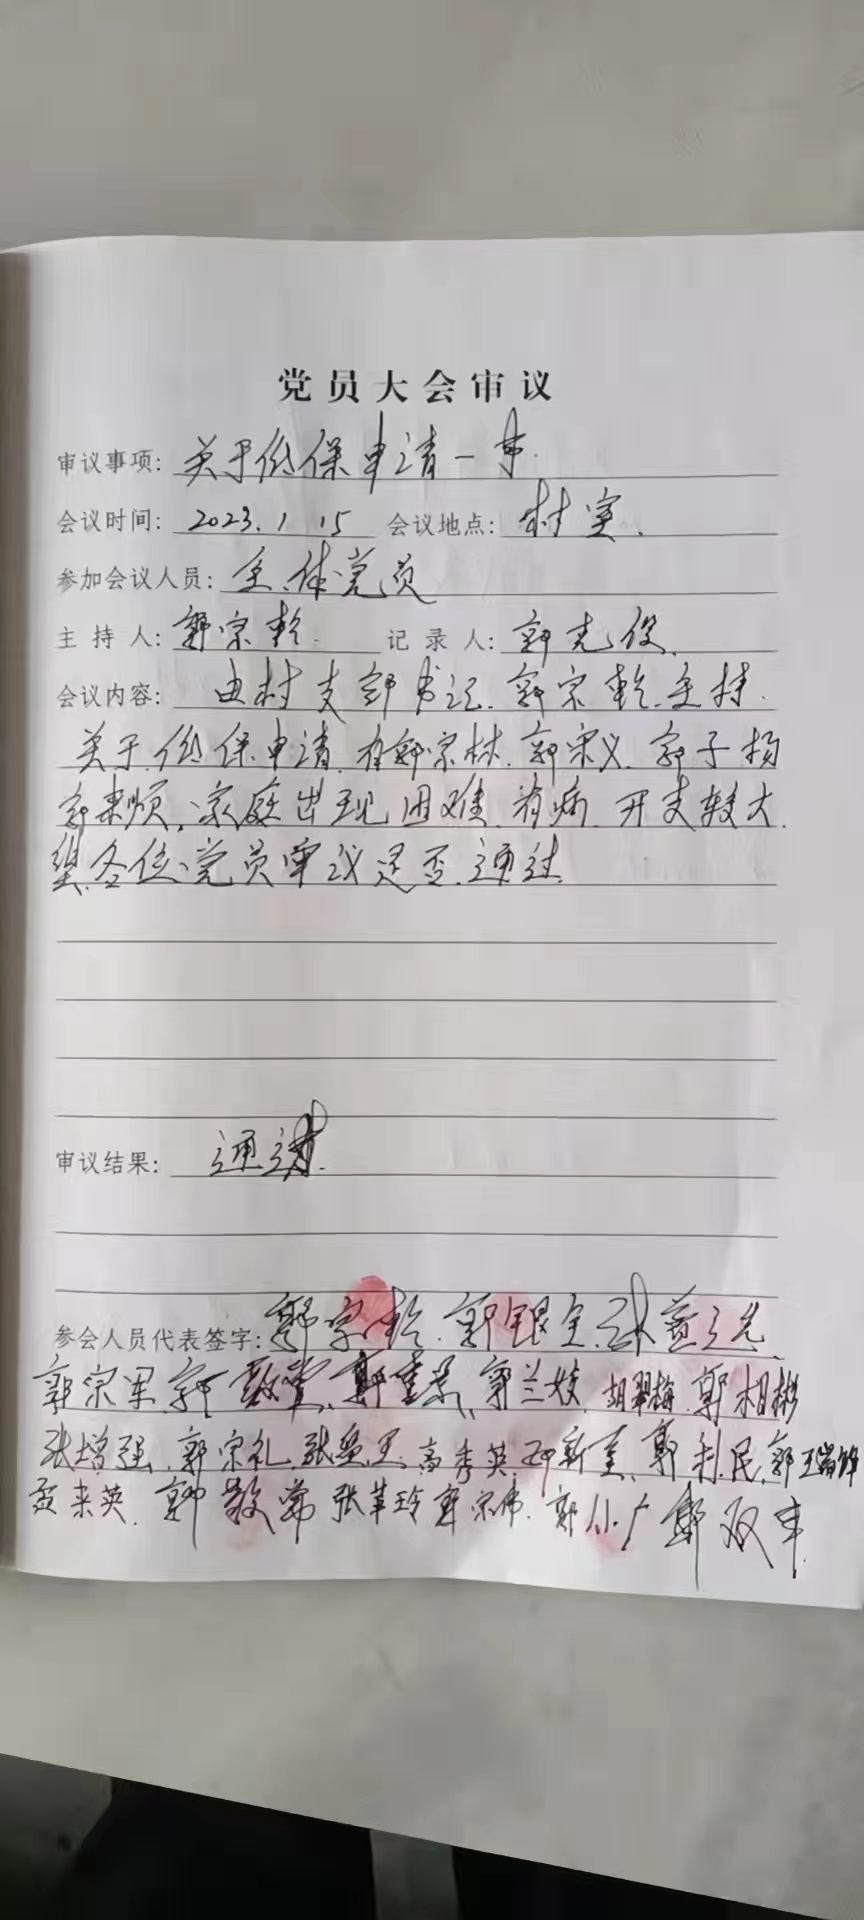 党员大会审议
审议事项: 关于低保申请一事.
会议时间: 2023.1 15 会议地点: 村室.
参加会议人员: 全体党员
主持人: 郭宗乾. 记录人: 郭克俊.
会议内容: 由村支部书记.郭宗乾.主持.
关于.低保申请.有郭宗林.郭宗义.郭子杨
郭来顺.家庭出现困难.有病.开支较大.
望.各位.党员审议是否.通过.
审议结果: 通过.
参会人员代表签字: 郭宗乾.郭银全.
郭宗军. 郭兰枝.胡翠梅.郭相彬
张增强.郭宗礼. 高秀英. 郭利民.
来英. 张革玲 郭宗伟.郭小广 郭双丰.